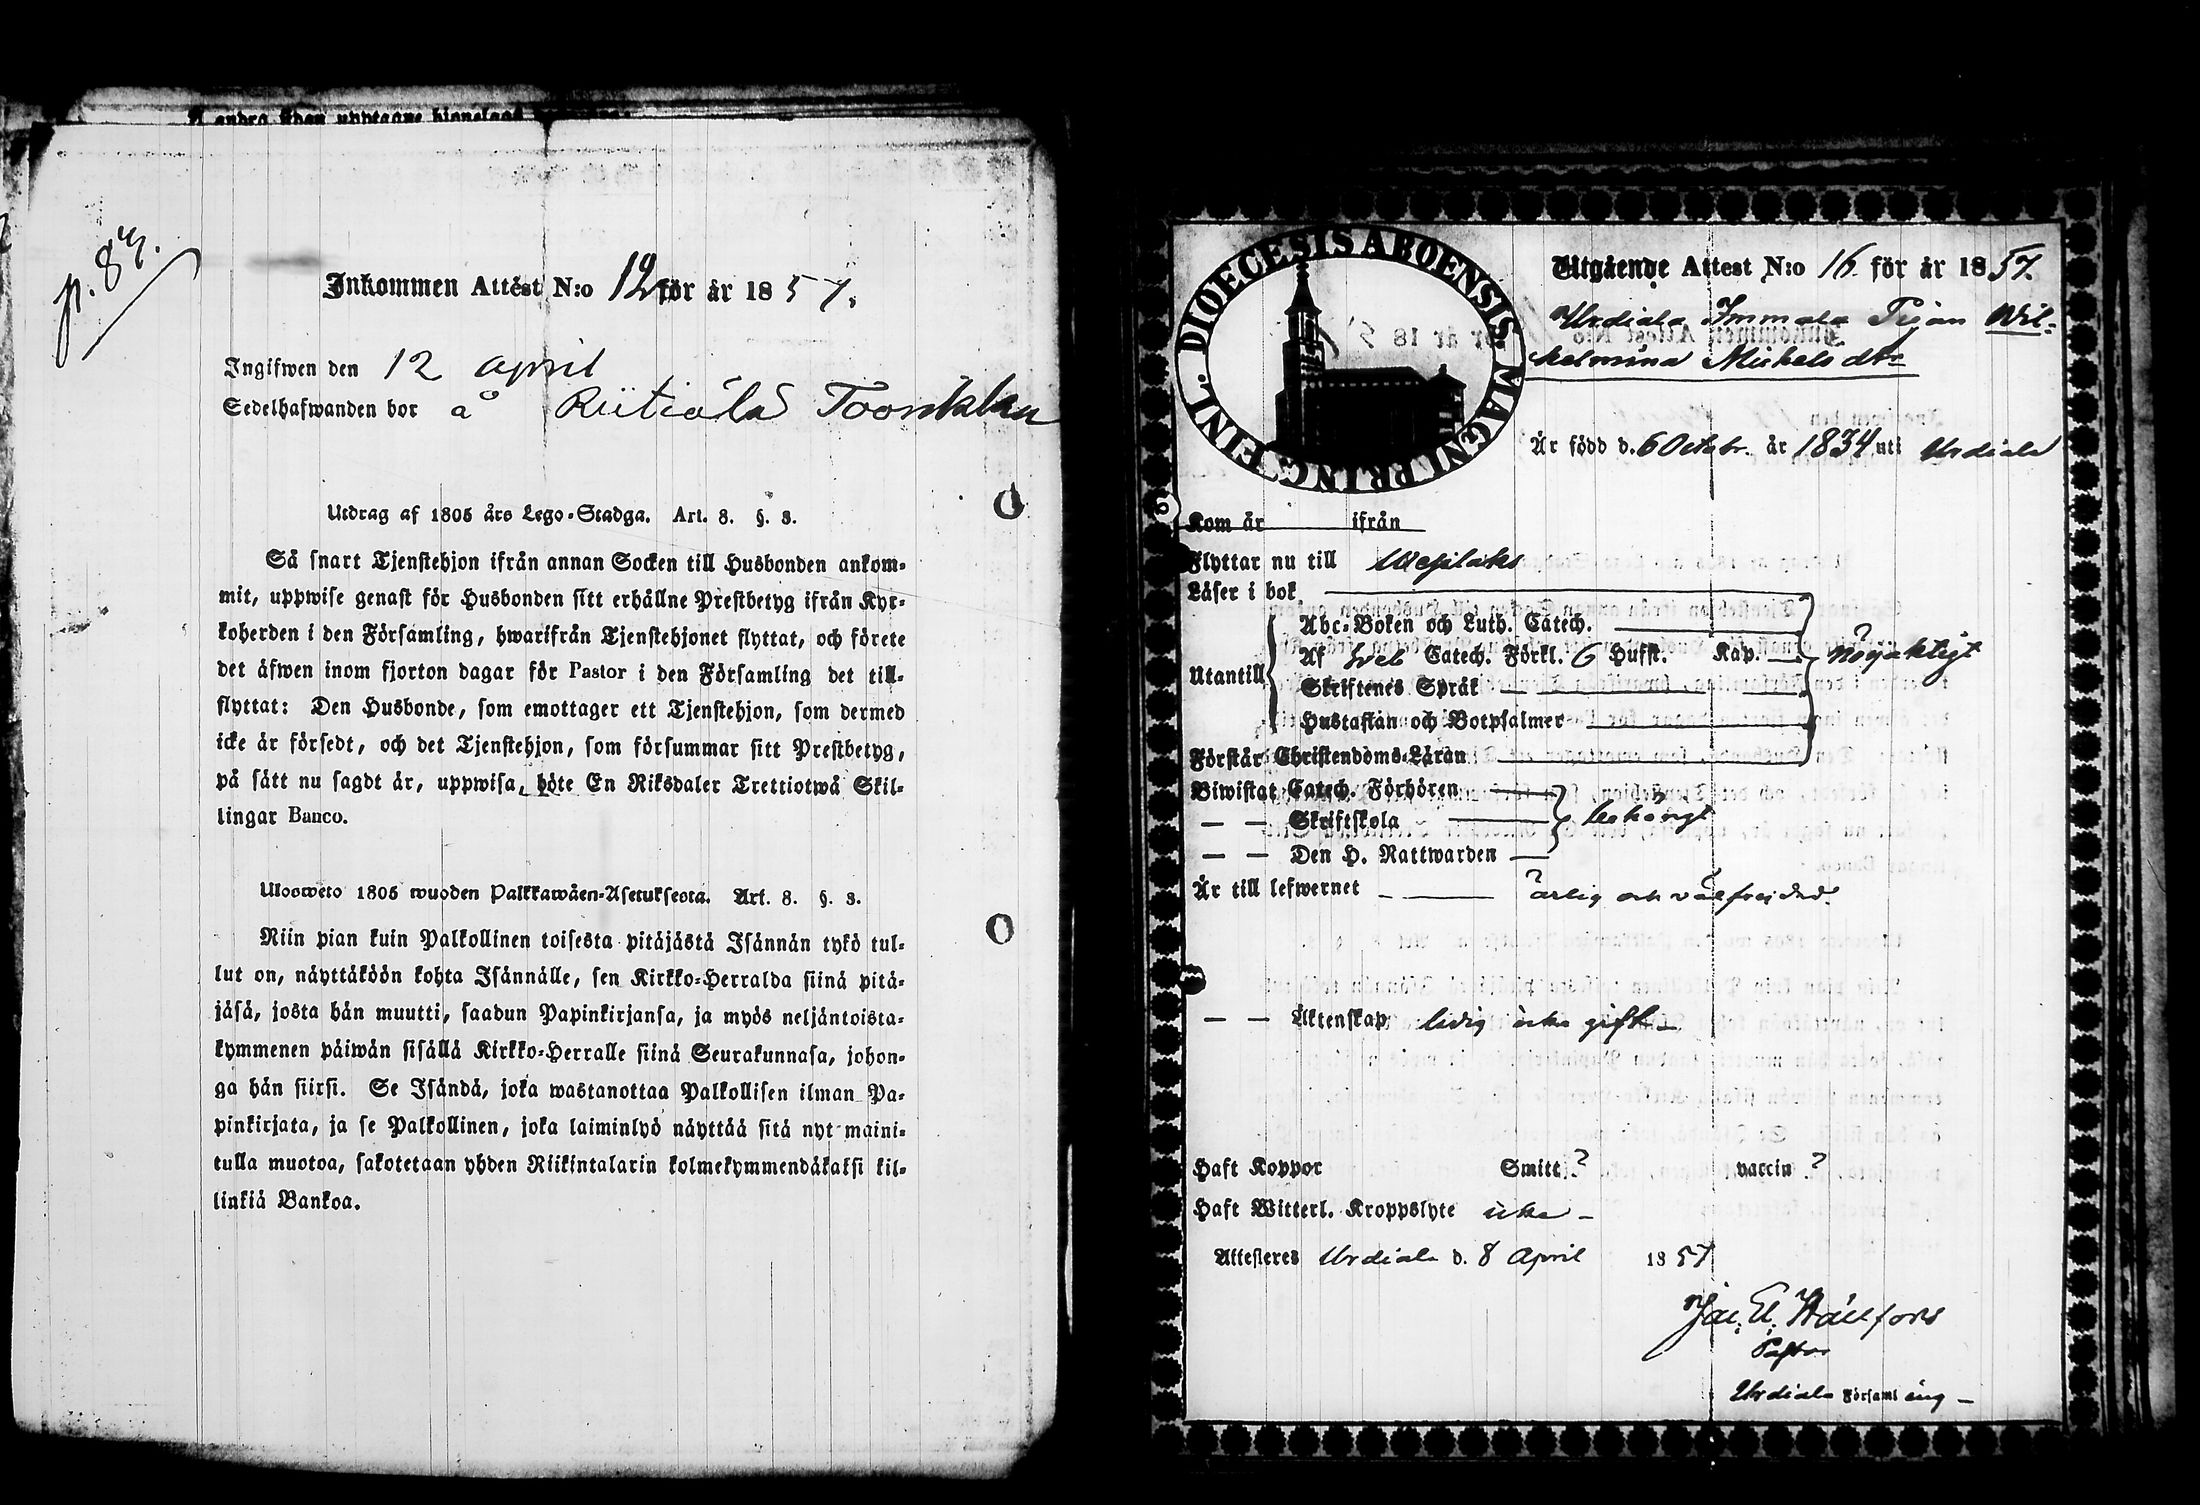 p. 83.
Inkommen Attest N:o 12 för år 1857.
Ingifwen den 12 april
Sedelhafwanden bor å Riitiala
Utdrag af 1805 års Lego-Stadga. Art. 8. §. 3.
Så snart Tjenstehjon ifrån annan Socken till Husbonden ankom-
mit, uppwise genast för Husbonden sitt erhållne Prestbetyg ifrån Kyr-
koherden i den Församling, hwarifrån Tjenstehjonet flyttat, och förete
det äfwen inom fjorton dagar för Pastor i den Församling det till-
flyttat: Den Husbonde, som emottager ett Tjenstehjon, som dermed
icke är försedt, och det Tjenstehjon, som försummar sitt Prestbetyg,
på sätt nu sagdt är, uppwisa, böte En Riksdaler Trettiotwå Skil-
lingar Banco.
Ulosweto 1805 wuoden Palkkawäen-Asetuksesta. Art. 8. §. 3.
Niin pian kuin Palkollinen toisesta pitäjästä Isännän tykö tul-
lut on, näyttäköön kohta Isännälle, sen Kirkko-Herralda siinä pitä-
jäsä, josta hän muutti, saadun Papinkirjansa, ja myös neljäntoista-
kymmenen päiwän sisällä Kirkko-Herralle siinä Seurakunnasa, johon-
ga hän siirsi. Se Isändä, joka wastanottaa Palkollisen ilman Pa-
pinkirjata, ja se Palkollinen, joka laiminlyö näyttää sitä nyt maini-
tulla muotoa, sakotetaan yhden Riikintalarin kolmekymmendäkaksi kil-
linkiä Bankoa.
DIOECESIS ABOENSIS MAGNI PRINC. FINL.
Utgående Attest N:o 16 för år 1857.
Urdiala Pigan Wil-
helmina Michelsdtr
Är född d. 6 Octobr. år 1834 uti Urdiala
Kom år ifrån
Flyttar nu till Wesilaks
Läser i bok
Utantill
Abc-Boken och Luth. Catech.
Af Catech. Förkl. 6 Hufst. Kap. nöjaktigt
Skriftenes Språk
Hustaflan och Botpsalmer
Förstår Christendoms-Läran
Biwistat Catech. Förhören
— — Skriftskola behörigt
— — Den H. Nattwarden
Är till lefwernet ärlig och välfrejdad.
— — Äktenskap ledig icke gift
Haft Koppor Smitt ? vaccin ?
Haft Witterl. Kroppslyte icke
Attesteres Urdiala d. 8 April 1857
Pastor
Urdiala Församl ing